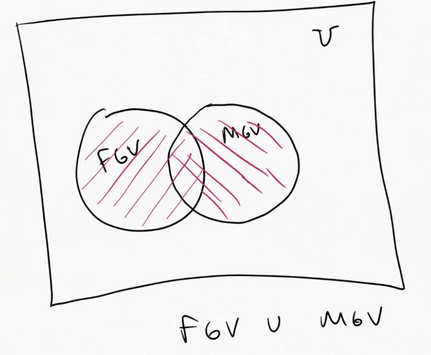 U
FGV
MGV
FGV ∪ MGV